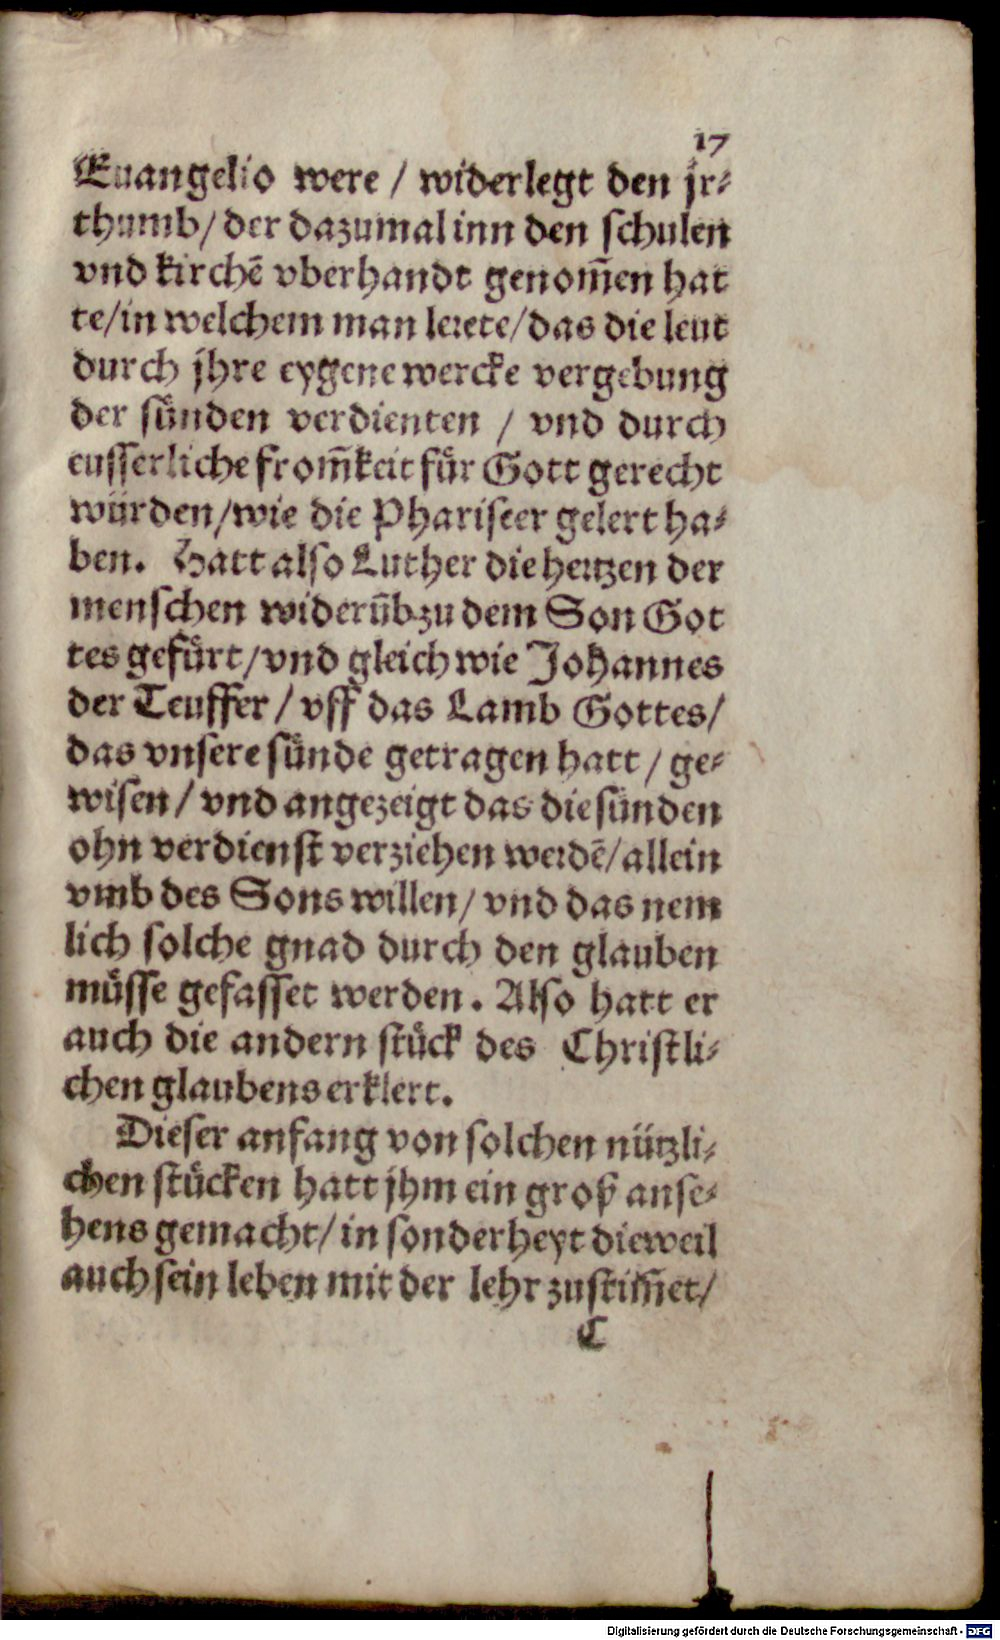 17
Euangelio were / widerlegt den jr⸗
thumb/ der dazumal inn den schulen
vnd kirchē vberhandt genom̄en hat
te/in welchem man lerete/das die leut
durch jhre eygene wercke vergebung
der sünden verdienten / vnd durch
eusserliche from̄keit für Gott gerecht
würden/wie die Phariseer gelert ha⸗
ben. Hatt also Luther die hertzen der
menschen widerūb zu dem Son Got
tes gefürt/vnd gleich wie Johannes
der Teuffer / vff das Lamb Gottes/
das vnsere sünde getragen hatt / ge⸗
wisen / vnd angezeigt das die sünden
ohn verdienst verziehen werdē/allein
vmb des Sons willen/ vnd das nem
lich solche gnad durch den glauben
müsse gefasset werden. Also hatt er
auch die andern stück des Christli⸗
chen glaubens erklert.
Dieser anfang von solchen nützli⸗
chen stücken hatt jhm ein groß anse⸗
hens gemacht/ in sonderheyt dieweil
auch sein leben mit der lehr zustim̄et/
C
Digitalisierung gefördert durch die Deutsche Forschungsgemeinschaft - DFG